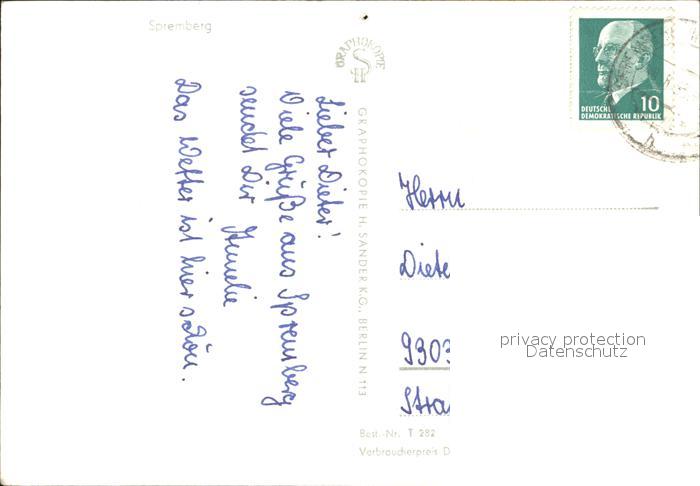 Spremberg
GRAPHOKOPIE
H S
Lieber Dieter!
Viele Grüße aus Spremberg
sendet Dir
Das Wetter ist hier schön.
GRAPHOKOPIE H. SANDER K.G., BERLIN N 113
DEUTSCHE
DEMOKRATISCHE REPUBLIK
10
Herrn
Diete
9303
Stra
privacy protection
Datenschutz
Best.-Nr. T 282
Verbraucherpreis D